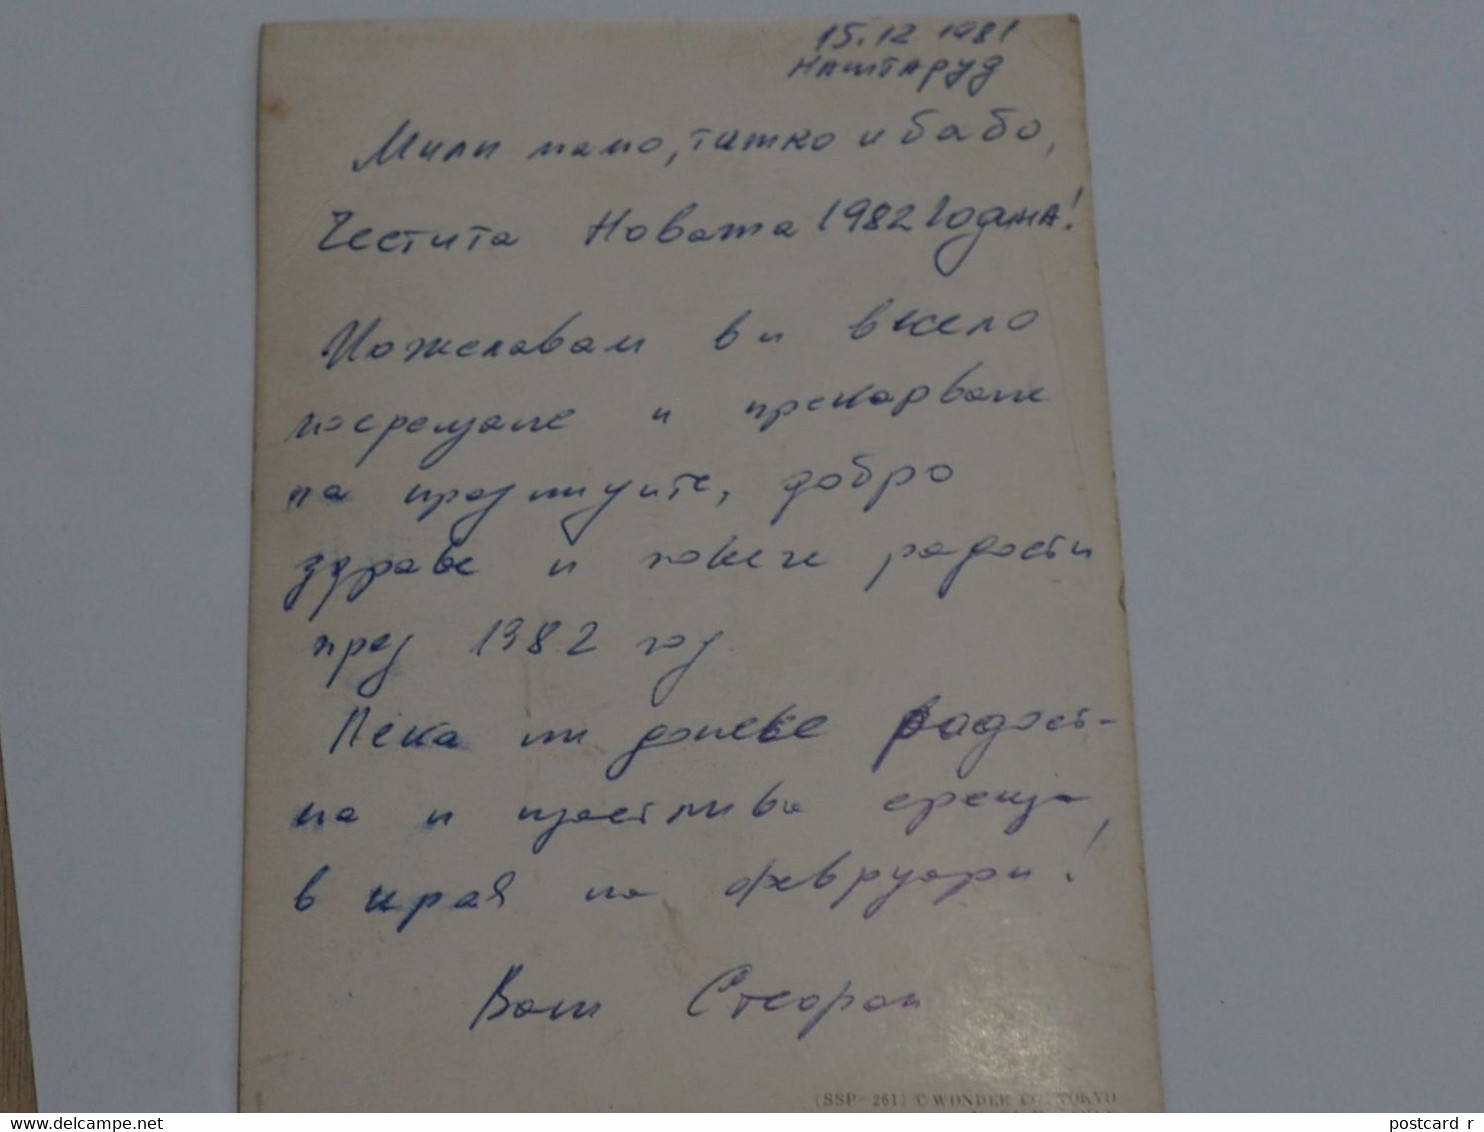 15.12 1981
НАШТАРУД
Мили мамо, татко и бабо,
Честита Новата 1982 Година!
Пожелавам ви весело
посрещане и прекарване
на празниците, добро
здраве и повече радости
през 1982 год.
Нека ни донесе радост-
на и щастлива среща
в края на февруари!
Ваш Стефан
(SSP-261) © WONDER CO. TOKYO
postcard r